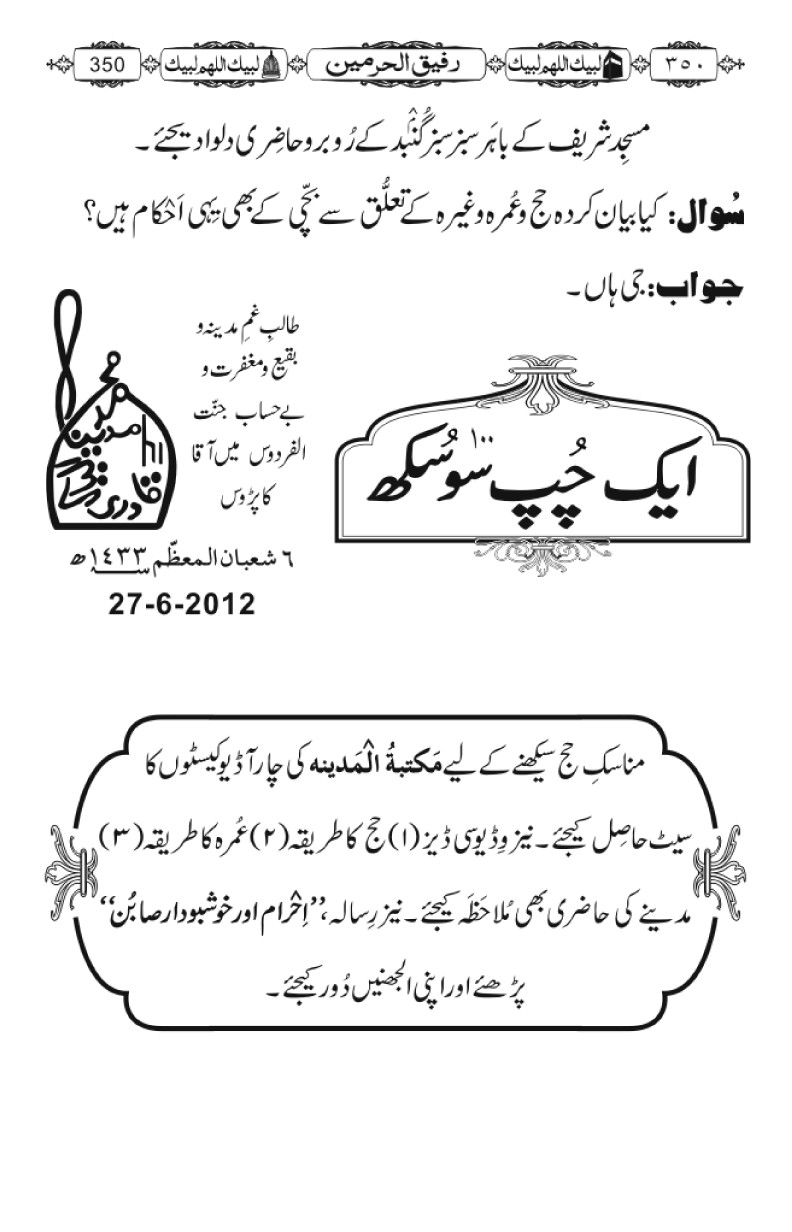 ۳۵۰ لبيك اللهم لبيك رفیق الحرمین لبيك اللهم لبيك 350
مسجِد شریف کے باہَر سبز سبز گُنبد کے رُو برو حاضِری دلوا دیجئے۔
سُوال: کیا بیان کردہ حج و عُمرہ وغیرہ کے تعلُّق سے بچّی کے بھی یہی اَحْکام ہیں؟
جواب: جی ہاں۔
ایک چُپ سو۱۰۰ سُکھ
طالبِ غمِ مدینہ و
بقیع و مغفرت و
بے حساب جنّت
الفردوس میں آقا
کا پڑوس
٦ شعبان المعظّم ١٤٣٣ھ
27-6-2012
مناسکِ حج سیکھنے کے لیے مَکتبۃُ الْمَدینہ کی چار آڈیو کیسٹوں کا
سیٹ حاصِل کیجئے۔ نیز وِڈیو سی ڈیز (۱) حج کا طریقہ (۲) عُمرہ کا طریقہ (۳)
مدینے کی حاضری بھی مُلاحَظَہ کیجئے۔ نیز رِسالہ، ’’اِحْرام اور خوشبودار صابُن‘‘
پڑھئے اور اپنی الجھنیں دُور کیجئے۔